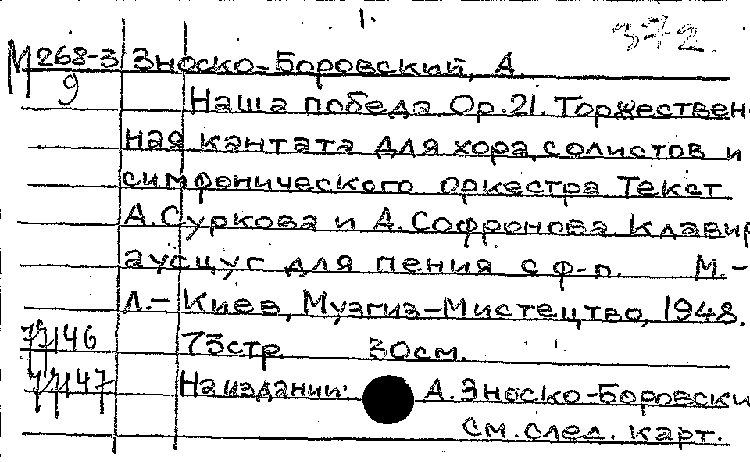 1.
372.
М 268-3 Зноско-Боровский, А.
9
Наша победа Ор.21. Торжествен-
ная кантата для хора, солистов и
симфонического оркестра Текст
А.Суркова и А.Софронова Клавир
аусцуг для пения с ф-п. М.-
Л.- Киев, Музгиз-Мистецтво, 1948.
75стр. 30см.
На издании: А.Зноско-Боровски
См.след. карт.